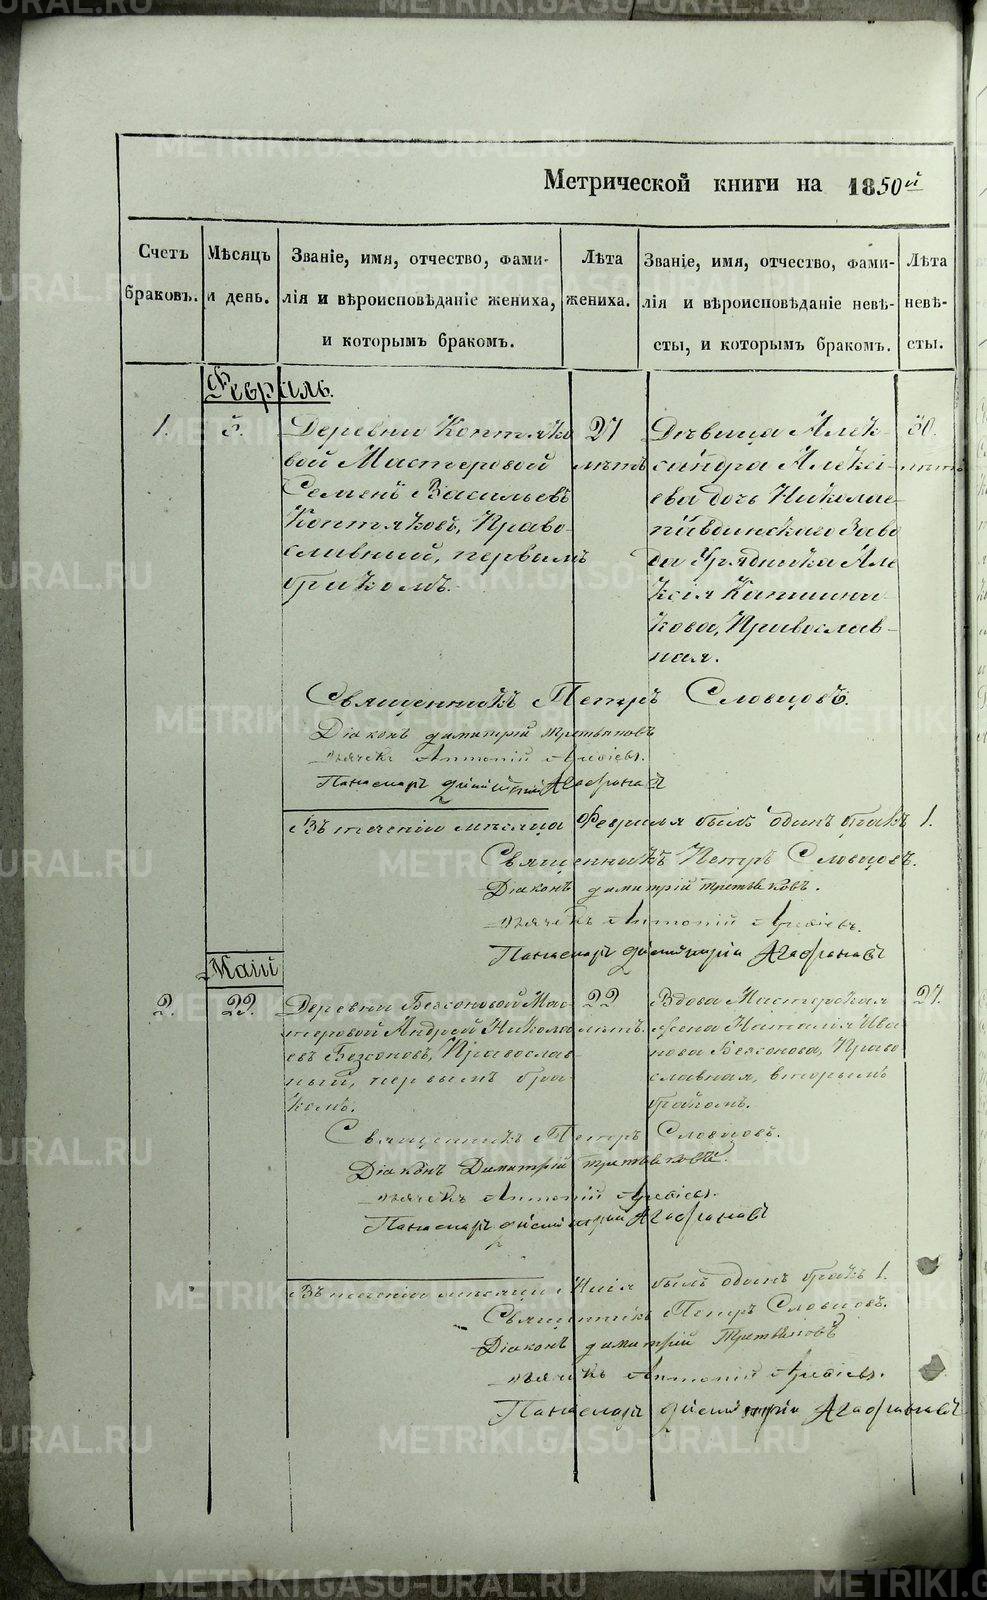 METRIKI.GASO-URAL.RU
Метрической книги на 1850й
Счетъ браковъ.
Мѣсяцъ и день.
Званіе, имя, отчество, фамилія и вѣроисповѣданіе жениха, и которымъ бракомъ.
Лѣта жениха.
Званіе, имя, отчество, фамилія и вѣроисповѣданіе невѣсты, и которымъ бракомъ.
Лѣта невѣсты.
Февраль.
1.
5.
Деревни Коптяко
вой Мастеровой
Семенъ Васильевъ
Коптяковъ, Право-
славный, первымъ
бракомъ.
27
лѣтъ
Дѣвица Алек-
сандра Алексі-
ева дочь Николае-
павдинскаго Заво
да Урядника Але
ксія
Православ-
ная.
30.
лѣтъ
Священникъ Петръ Словцовъ.
Діаконъ Димитрій Третьяковъ
Дьячекъ Антоній
Панамарь Димитрій Агафоновъ
Въ теченіи мѣсяца Февраля былъ одинъ бракъ 1.
Священникъ Петръ Словцовъ.
Діаконъ Димитрій Третьяковъ.
Дьячекъ Антоній
Панамарь Димитрій Агафоновъ
Маій
2.
Деревни Безсоновой Мас-
теровой Андрей Никола
евъ Безсоновъ, Православ-
ный, первымъ бра-
комъ.
22
лѣтъ.
Вдова Мастерская
жена Наталія Ива
нова Безсонова, Право
славная, вторымъ
бракомъ.
27.
Священникъ Петръ Словцовъ.
Діаконъ Димитрій Третьяковъ.
Дьячекъ Антоній
Панамарь Димитрій Агафоновъ
Въ теченіи мѣсяца Маія былъ одинъ бракъ 1.
Священникъ Петръ Словцовъ.
Діаконъ Димитрій Третьяковъ
Дьячекъ Антоній
Панамарь Димитрій Агафоновъ